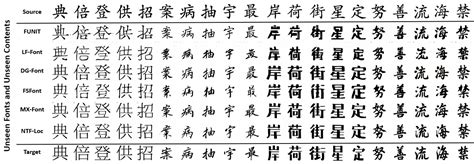 Unseen Fonts and Unseen Contents
Source 典倍登供招案病抽宇最岸荷街星定努善流海禁
FUNIT 典倍登供招案病抽宇最岸荷街星定努善流海禁
LF-Font 典倍登供招案病抽宇最岸荷街星定努善流海禁
DG-Font 典倍登供招案病抽宇最岸荷街星定努善流海禁
FSFont 典倍登供招案病抽宇最岸荷街星定努善流海禁
MX-Font 典倍登供招案病抽宇最岸荷街星定努善流海禁
NTF-Loc 典倍登供招案病抽宇最岸荷街星定努善流海禁
Target 典倍登供招案病抽宇最岸荷街星定努善流海禁